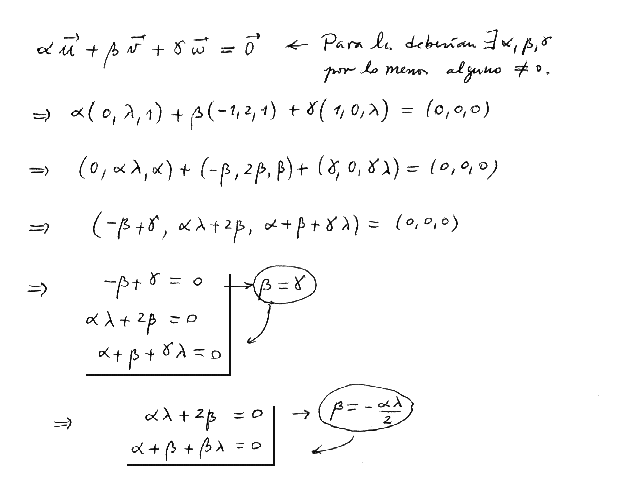 α u⃗ + β v⃗ + γ w⃗ = 0⃗ ← Para l.d. deberían ∃ α, β, γ
por lo menos alguno ≠ 0.
⇒ α(0, λ, 1) + β(-1, 2, 1) + γ(1, 0, λ) = (0, 0, 0)
⇒ (0, αλ, α) + (-β, 2β, β) + (γ, 0, γλ) = (0, 0, 0)
⇒ (-β + γ, αλ + 2β, α + β + γλ) = (0, 0, 0)
⇒ -β + γ = 0 → β = γ
αλ + 2β = 0
α + β + γλ = 0
⇒ αλ + 2β = 0 → β = - αλ/2
α + β + βλ = 0